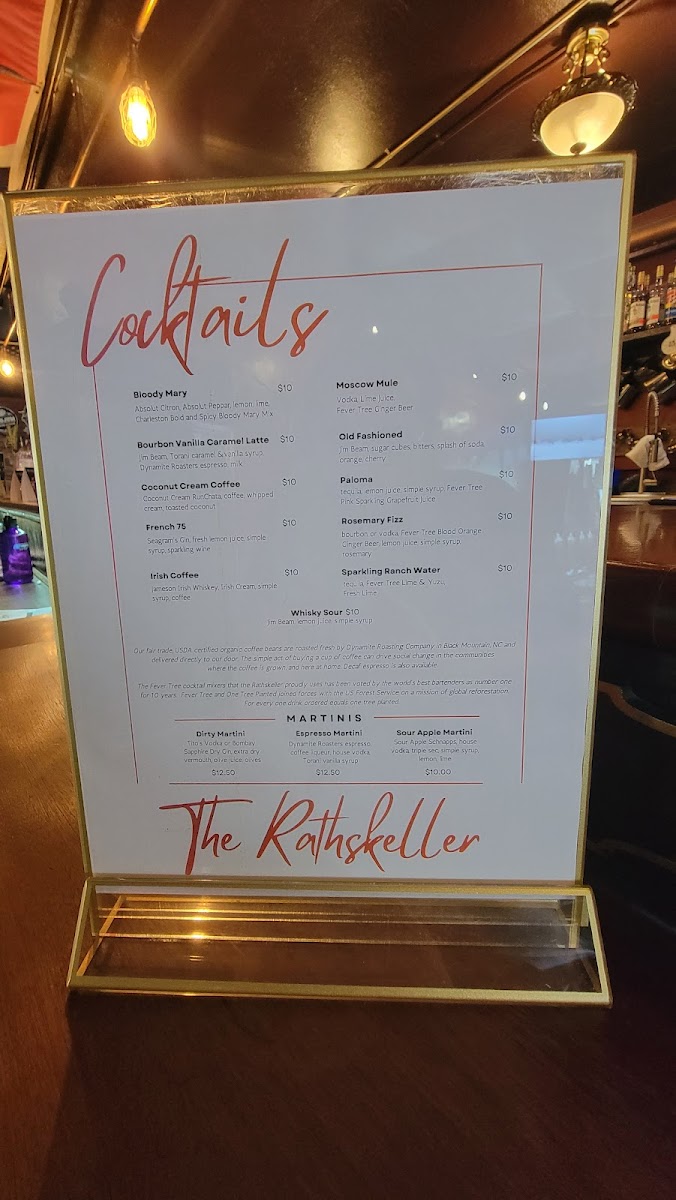 Cocktails
Bloody Mary $10
Absolut Citron, Absolut Peppar, lemon, lime,
Charleston Bold and Spicy Bloody Mary Mix
Bourbon Vanilla Caramel Latte $10
Jim Beam, Torani caramel & vanilla syrup,
Dynamite Roasters espresso, milk
Coconut Cream Coffee $10
Coconut Cream RumChata, coffee, whipped
cream, toasted coconut
French 75 $10
Seagram's Gin, fresh lemon juice, simple
syrup, sparkling wine
Irish Coffee $10
Jameson Irish Whiskey, Irish Cream, simple
syrup, coffee
Moscow Mule $10
Vodka, Lime Juice,
Fever Tree Ginger Beer
Old Fashioned $10
Jim Beam, sugar cubes, bitters, splash of soda,
orange, cherry
Paloma $10
tequila, lemon juice, simple syrup, Fever Tree
Pink Sparkling Grapefruit Juice
Rosemary Fizz $10
bourbon or vodka, Fever Tree Blood Orange
Ginger Beer, lemon juice, simple syrup,
rosemary
Sparkling Ranch Water $10
tequila, Fever Tree Lime & Yuzu,
Fresh Lime
Whisky Sour $10
Jim Beam, lemon juice, simple syrup
Our fair trade, USDA certified organic coffee beans are roasted fresh by Dynamite Roasting Company in Black Mountain, NC and
delivered directly to our door. The simple act of buying a cup of coffee can drive social change in the communities
where the coffee is grown, and here at home. Decaf espresso is also available.
The Fever Tree cocktail mixers that the Rathskeller proudly uses has been voted by the world's best bartenders as number one
for 10 years. Fever Tree and One Tree Planted joined forces with the US Forest Service on a mission of global reforestation.
For every one drink ordered equals one tree planted.
MARTINIS
Dirty Martini
Tito's Vodka or Bombay
Sapphire Dry Gin, extra dry
vermouth, olive juice, olives
$12.50
Espresso Martini
Dynamite Roasters espresso,
coffee liqueur, house vodka,
Torani vanilla syrup
$12.50
Sour Apple Martini
Sour Apple Schnapps, house
vodka, triple sec, simple syrup,
lemon, lime
$10.00
The Rathskeller